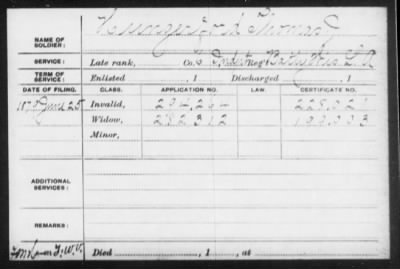 NAME OF SOLDIER: Thomas J
SERVICE: Late rank, Co. Reg't
TERM OF SERVICE: Enlisted , 1 Discharged , 1
DATE OF FILING. CLASS. APPLICATION NO. LAW. CERTIFICATE NO.
June 25 Invalid, 294,264 228,021
Widow, 282312 199,003
Minor,
ADDITIONAL SERVICES:
REMARKS:
Died , 1 , at